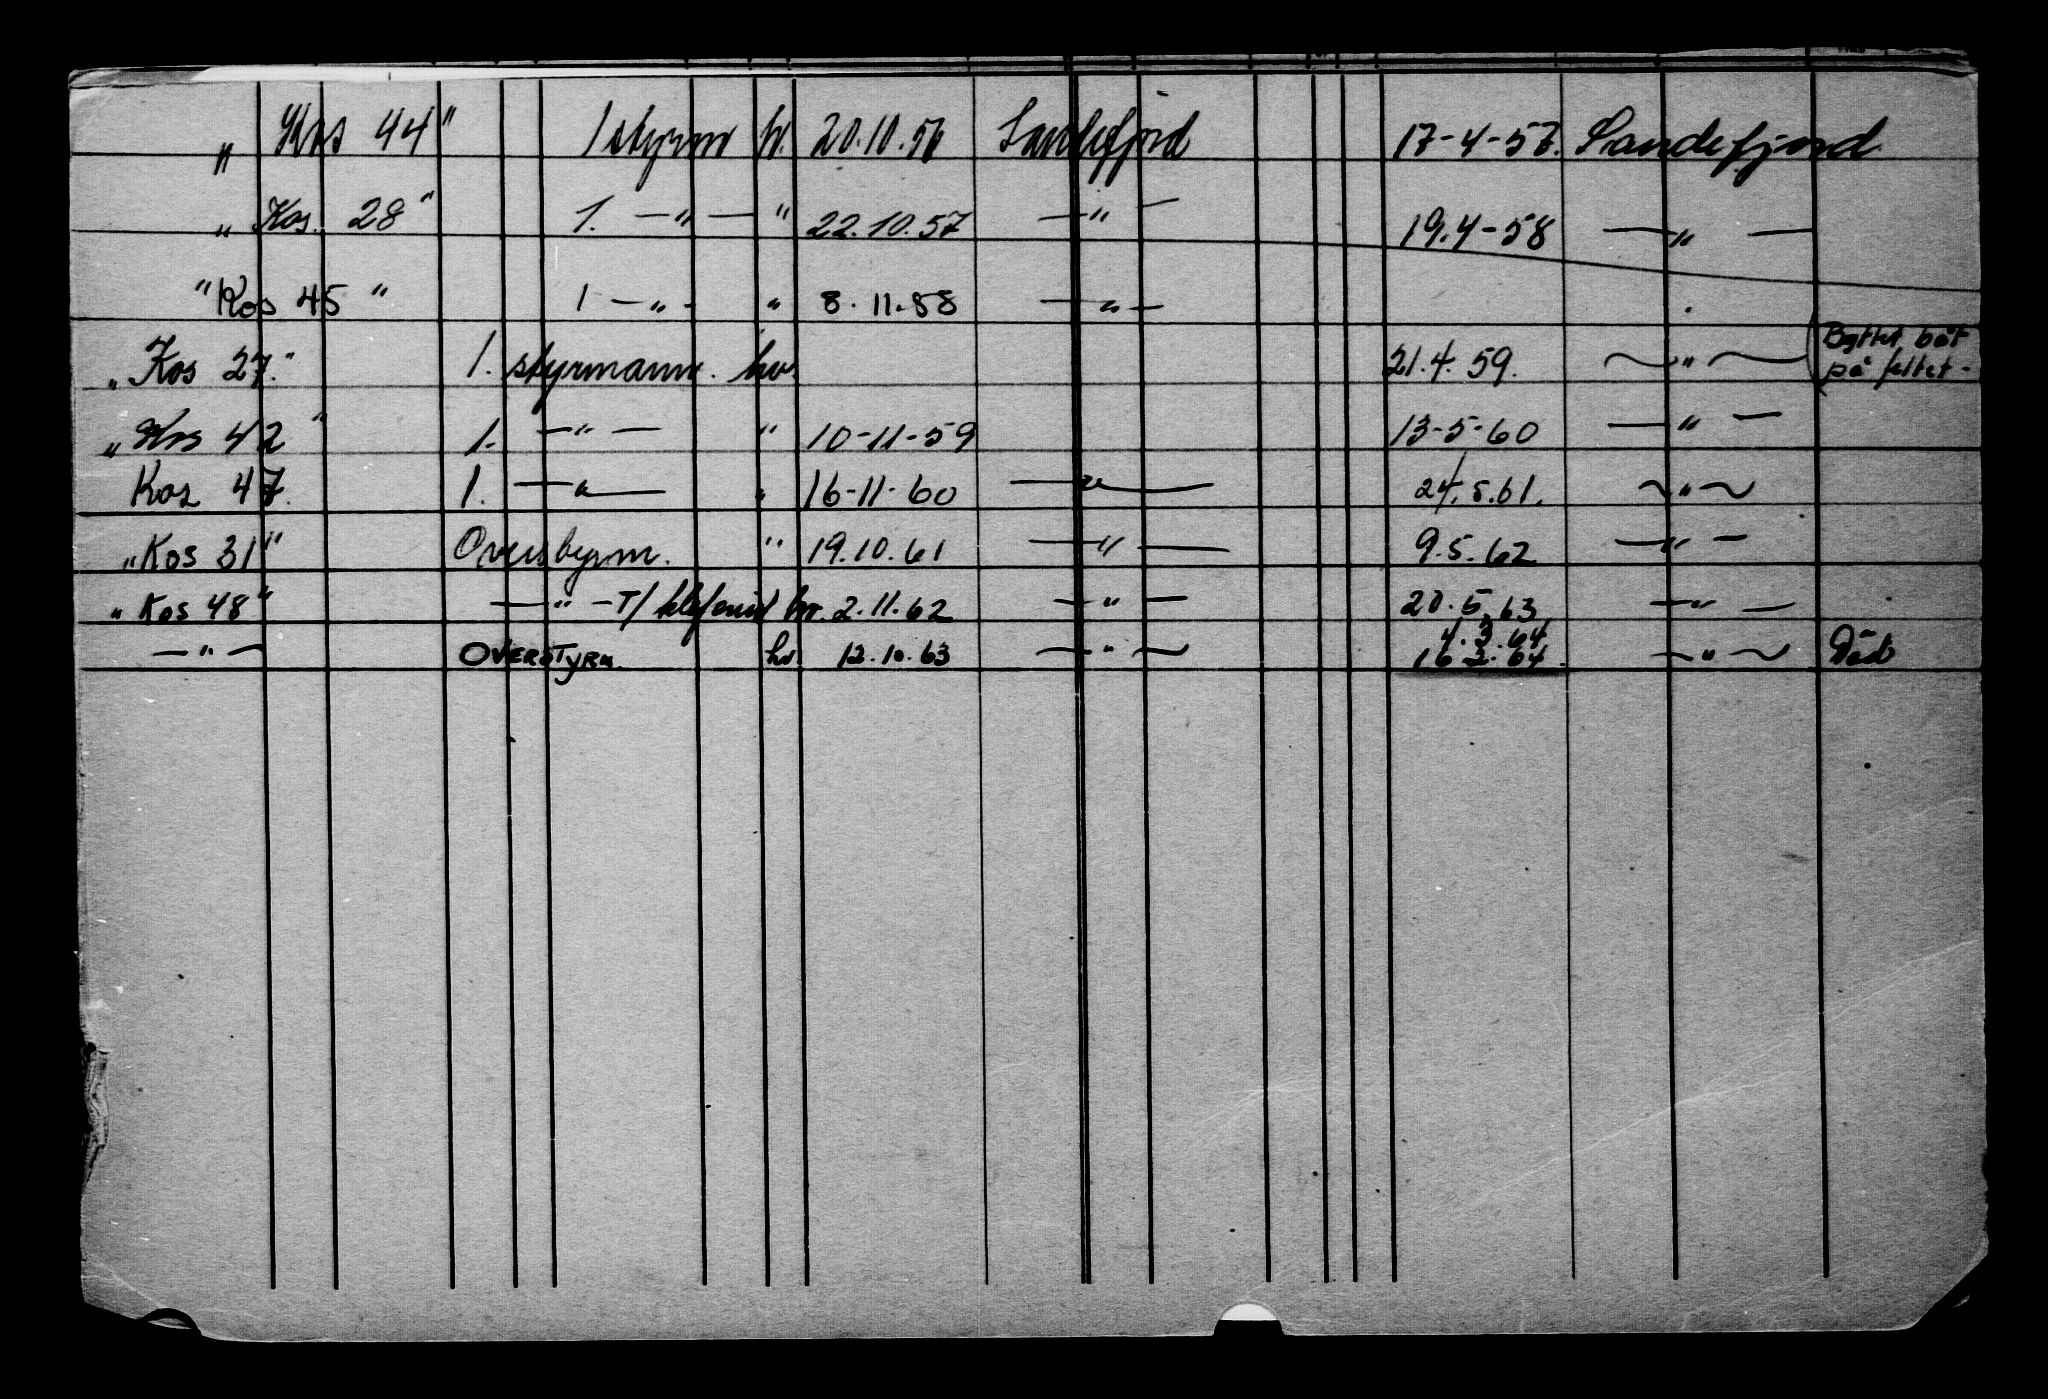 „ Kos 44" 1 styrm h. 20.10.56 Sandefjord 17-4-57. Sandefjord
„ Kos. 28" 1. —"— " 22.10.57 —"— 19.4-58 —"—
"Kos 45" 1 —"- " 8.11.58 —"—
„Kos 27." 1. styrmann. hv. 21.4.59. —"— (Byttet båt
på feltet-
„Kos 42" 1. —"— " 10-11-59 13-5-60 —"—
Kos 47. 1. —"— " 16-11-60 —"— 24.5.61. ~"~
„Kos 31" Overstyrm. " 19.10.61 —"— 9.5.62 —"—
„Kos 48" —"— T/ telefonist hv. 2.11.62 —"— 20.5.63 —"—
—"— OVERSTYRM. hv 12.10.63 —"— 4.3.64 16.2.64. —"~ Död